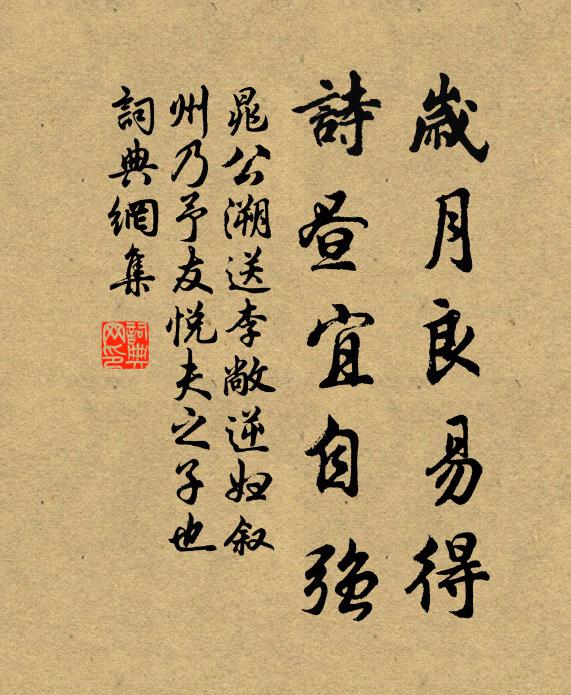 歲月良易得
詩書宜自強
晁公溯送李敞逆妇叙
州乃予友悦夫之子也
詞典網集
詞典网印